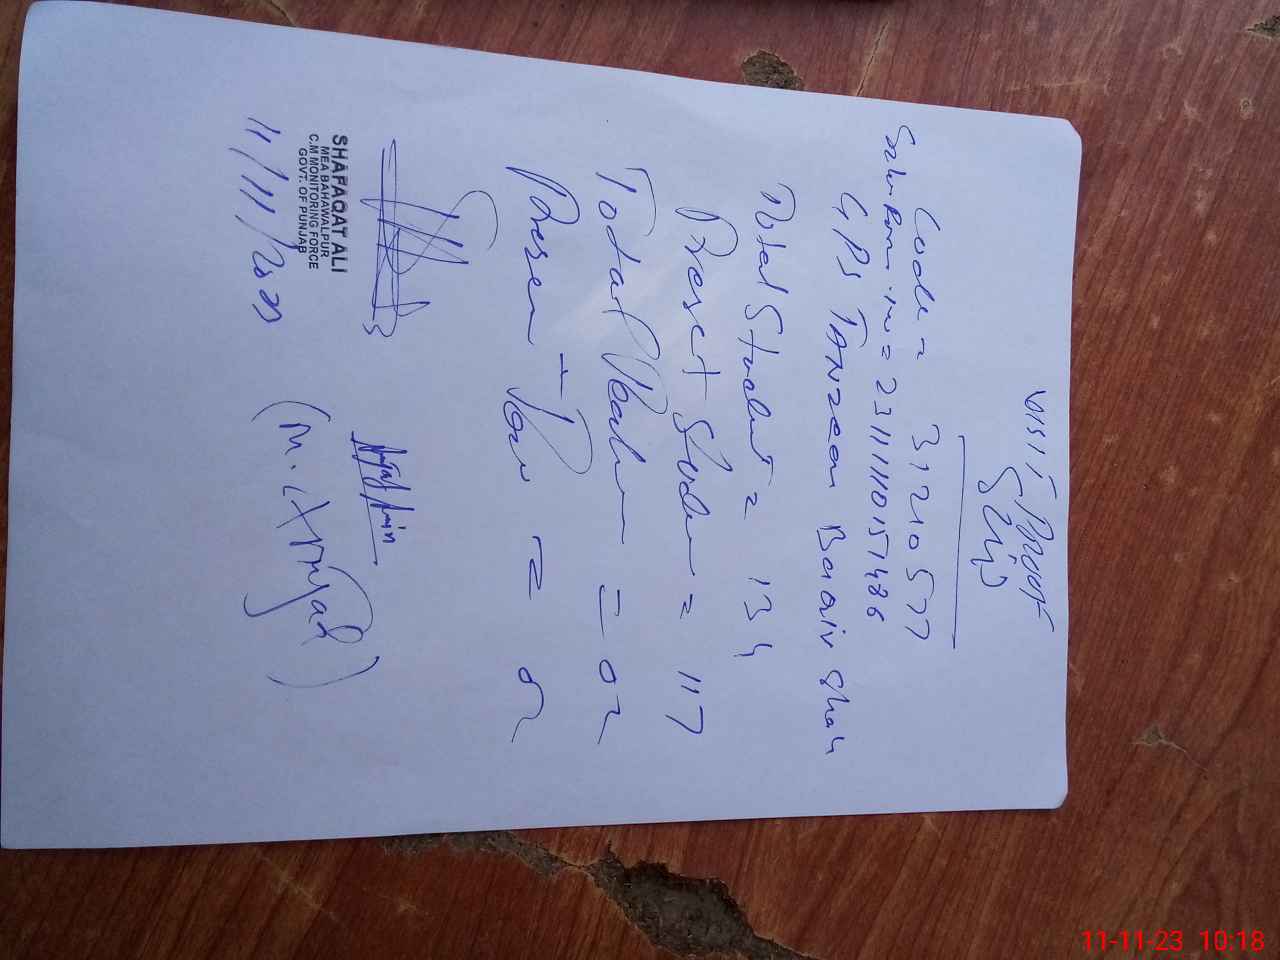 Visit Proof
Slip
Code = 31210577
= 23111110151486
GPS TANzeem Bahair Shah
Total Student = 134
Present Studen = 117
Total Teacher = 02
Presen Tea = 02
SHAFAQAT ALI
MEA BAHAWALPUR
C.M MONITORING FORCE
GOVT. OF PUNJAB
11/11/2023
(M. Amjad)
11-11-23 10:18